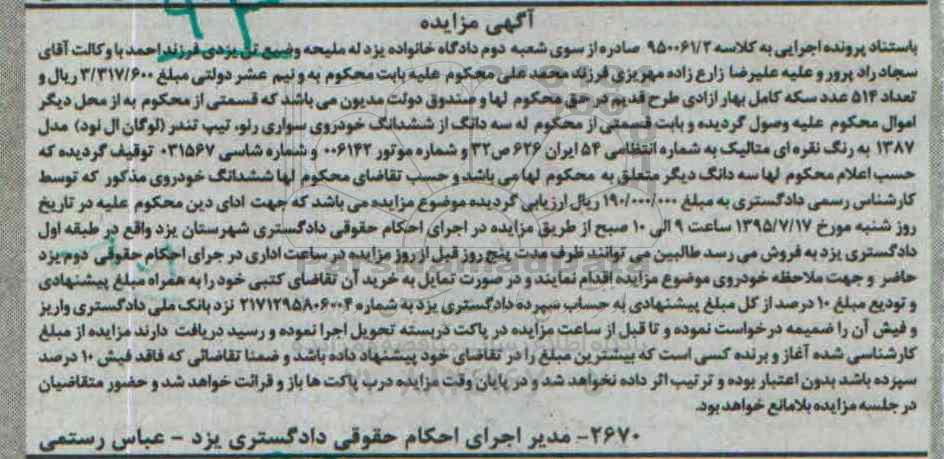 آگهی مزایده
باستناد پرونده اجرایی به کلاسه ۹۵۰۰۶۱/۲ صادره از سوی شعبه دوم دادگاه خانواده یزد له ملیحه وضیع تل یزدی فرزند احمد با وکالت آقای
سجاد راد پرور و علیه علیرضا زارع زاده مهریزی فرزند محمد علی محکوم علیه بابت محکوم به و نیم عشر دولتی مبلغ ۳/۳۱۷/۶۰۰ ریال و
تعداد ۵۱۴ عدد سکه کامل بهار ازادی طرح قدیم در حق محکوم لها و صندوق دولت مدیون می باشد که قسمتی از محکوم به از محل دیگر
اموال محکوم علیه وصول گردیده و بابت قسمتی از محکوم له سه دانگ از ششدانگ خودروی سواری رنو، تیپ تندر (لوگان ال نود) مدل
۱۳۸۷ به رنگ نقره ای متالیک به شماره انتظامی ۵۴ ایران ۶۲۶ ص ۳۲ و شماره موتور ۰۰۶۱۴۲ و شماره شاسی ۰۳۱۵۶۷ توقیف گردیده که
حسب اعلام محکوم لها سه دانگ دیگر متعلق به محکوم لها می باشد و حسب تقاضای محکوم لها ششدانگ خودروی مذکور که توسط
کارشناس رسمی دادگستری به مبلغ ۱۹۰/۰۰۰/۰۰۰ ریال ارزیابی گردیده موضوع مزایده می باشد که جهت ادای دین محکوم علیه در تاریخ
روز شنبه مورخ ۱۳۹۵/۷/۱۷ ساعت ۹ الی ۱۰ صبح از طریق مزایده در اجرای احکام حقوقی دادگستری شهرستان یزد واقع در طبقه اول
دادگستری یزد به فروش می رسد طالبین می توانند ظرف مدت پنج روز قبل از روز مزایده در ساعت اداری در جرای احکام حقوقی دوم یزد
حاضر و جهت ملاحظه خودروی موضوع مزایده اقدام نمایند و در صورت تمایل به خرید آن تقاضای کتبی خود را به همراه مبلغ پیشنهادی
و تودیع مبلغ ۱۰ درصد از کل مبلغ پیشنهادی به حساب سپرده دادگستری یزد به شماره ۲۱۷۱۲۹۵۸۰۶۰۰۴ نزد بانک ملی دادگستری واریز
و فیش آن را ضمیمه درخواست نموده و تا قبل از ساعت مزایده در پاکت دربسته تحویل اجرا نموده و رسید دریافت دارند مزایده از مبلغ
کارشناسی شده آغاز و برنده کسی است که بیشترین مبلغ را در تقاضای خود پیشنهاد داده باشد و ضمنا تقاضائی که فاقد فیش ۱۰ درصد
سپرده باشد بدون اعتبار بوده و ترتیب اثر داده نخواهد شد و در پایان وقت مزایده درب پاکت ها باز و قرائت خواهد شد و حضور متقاضیان
در جلسه مزایده بلامانع خواهد بود.
۲۶۷۰- مدیر اجرای احکام حقوقی دادگستری یزد - عباس رستمی